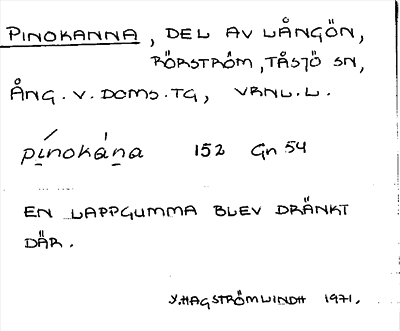 PINOKANNA, DEL AV LÅNGÖN,
RÖRSTRÖM, TÅSJÖ SN,
ÅNG. V. DOMS. TG, VRNL. L.
pínokána 152 Gn 54
EN LAPPGUMMA BLEV DRÄNKT
DÄR.
V. HAGSTRÖM LINDH 1971.